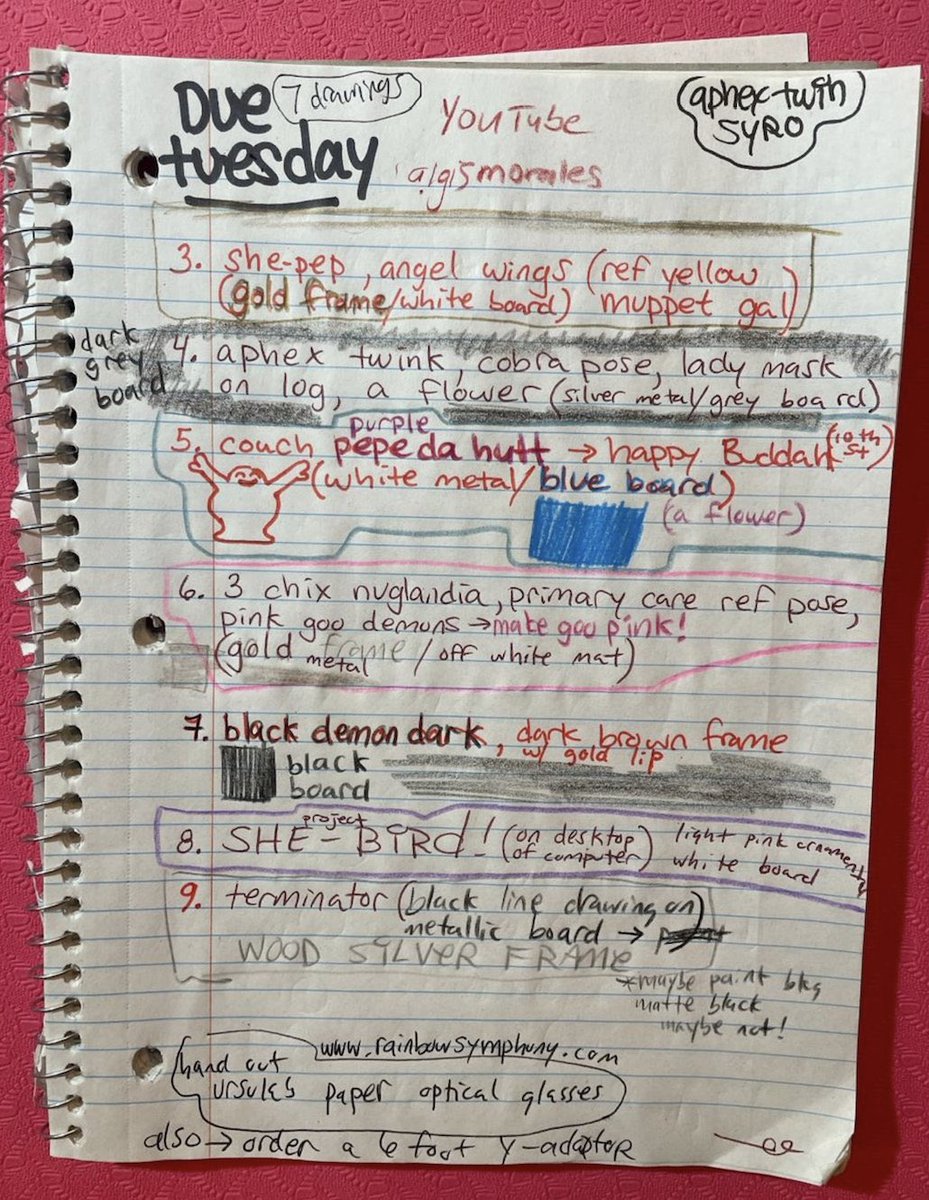 Due
7 drawings
tuesday
YouTube
algismorales
aphex twin
SYRO
3. she-pep, angel wings (ref yellow
(gold frame/white board) muppet gal)
dark
grey
board
4. aphex twink, cobra pose, lady mask
on log, a flower (silver metal/grey board)
purple
5. couch pepe da hutt → happy Buddah (10th St)
(white metal/blue board)
(a flower)
6. 3 chix nuglandia, primary care ref pose,
pink goo demons → make goo pink!
(gold frame / off white mat)
metal
7. black demon dark, dark brown frame
w/ gold lip
black
board
project
8. SHE-BIRD! (on desktop
of computer)
light pink
white board
9. terminator (black line drawing on)
metallic board →
WOOD SILVER FRAME
*maybe paint bkg
matte black
maybe not!
www.rainbowsymphony.com
hand out
ursula's paper optical glasses
also → order a 6 foot Y-adaptor